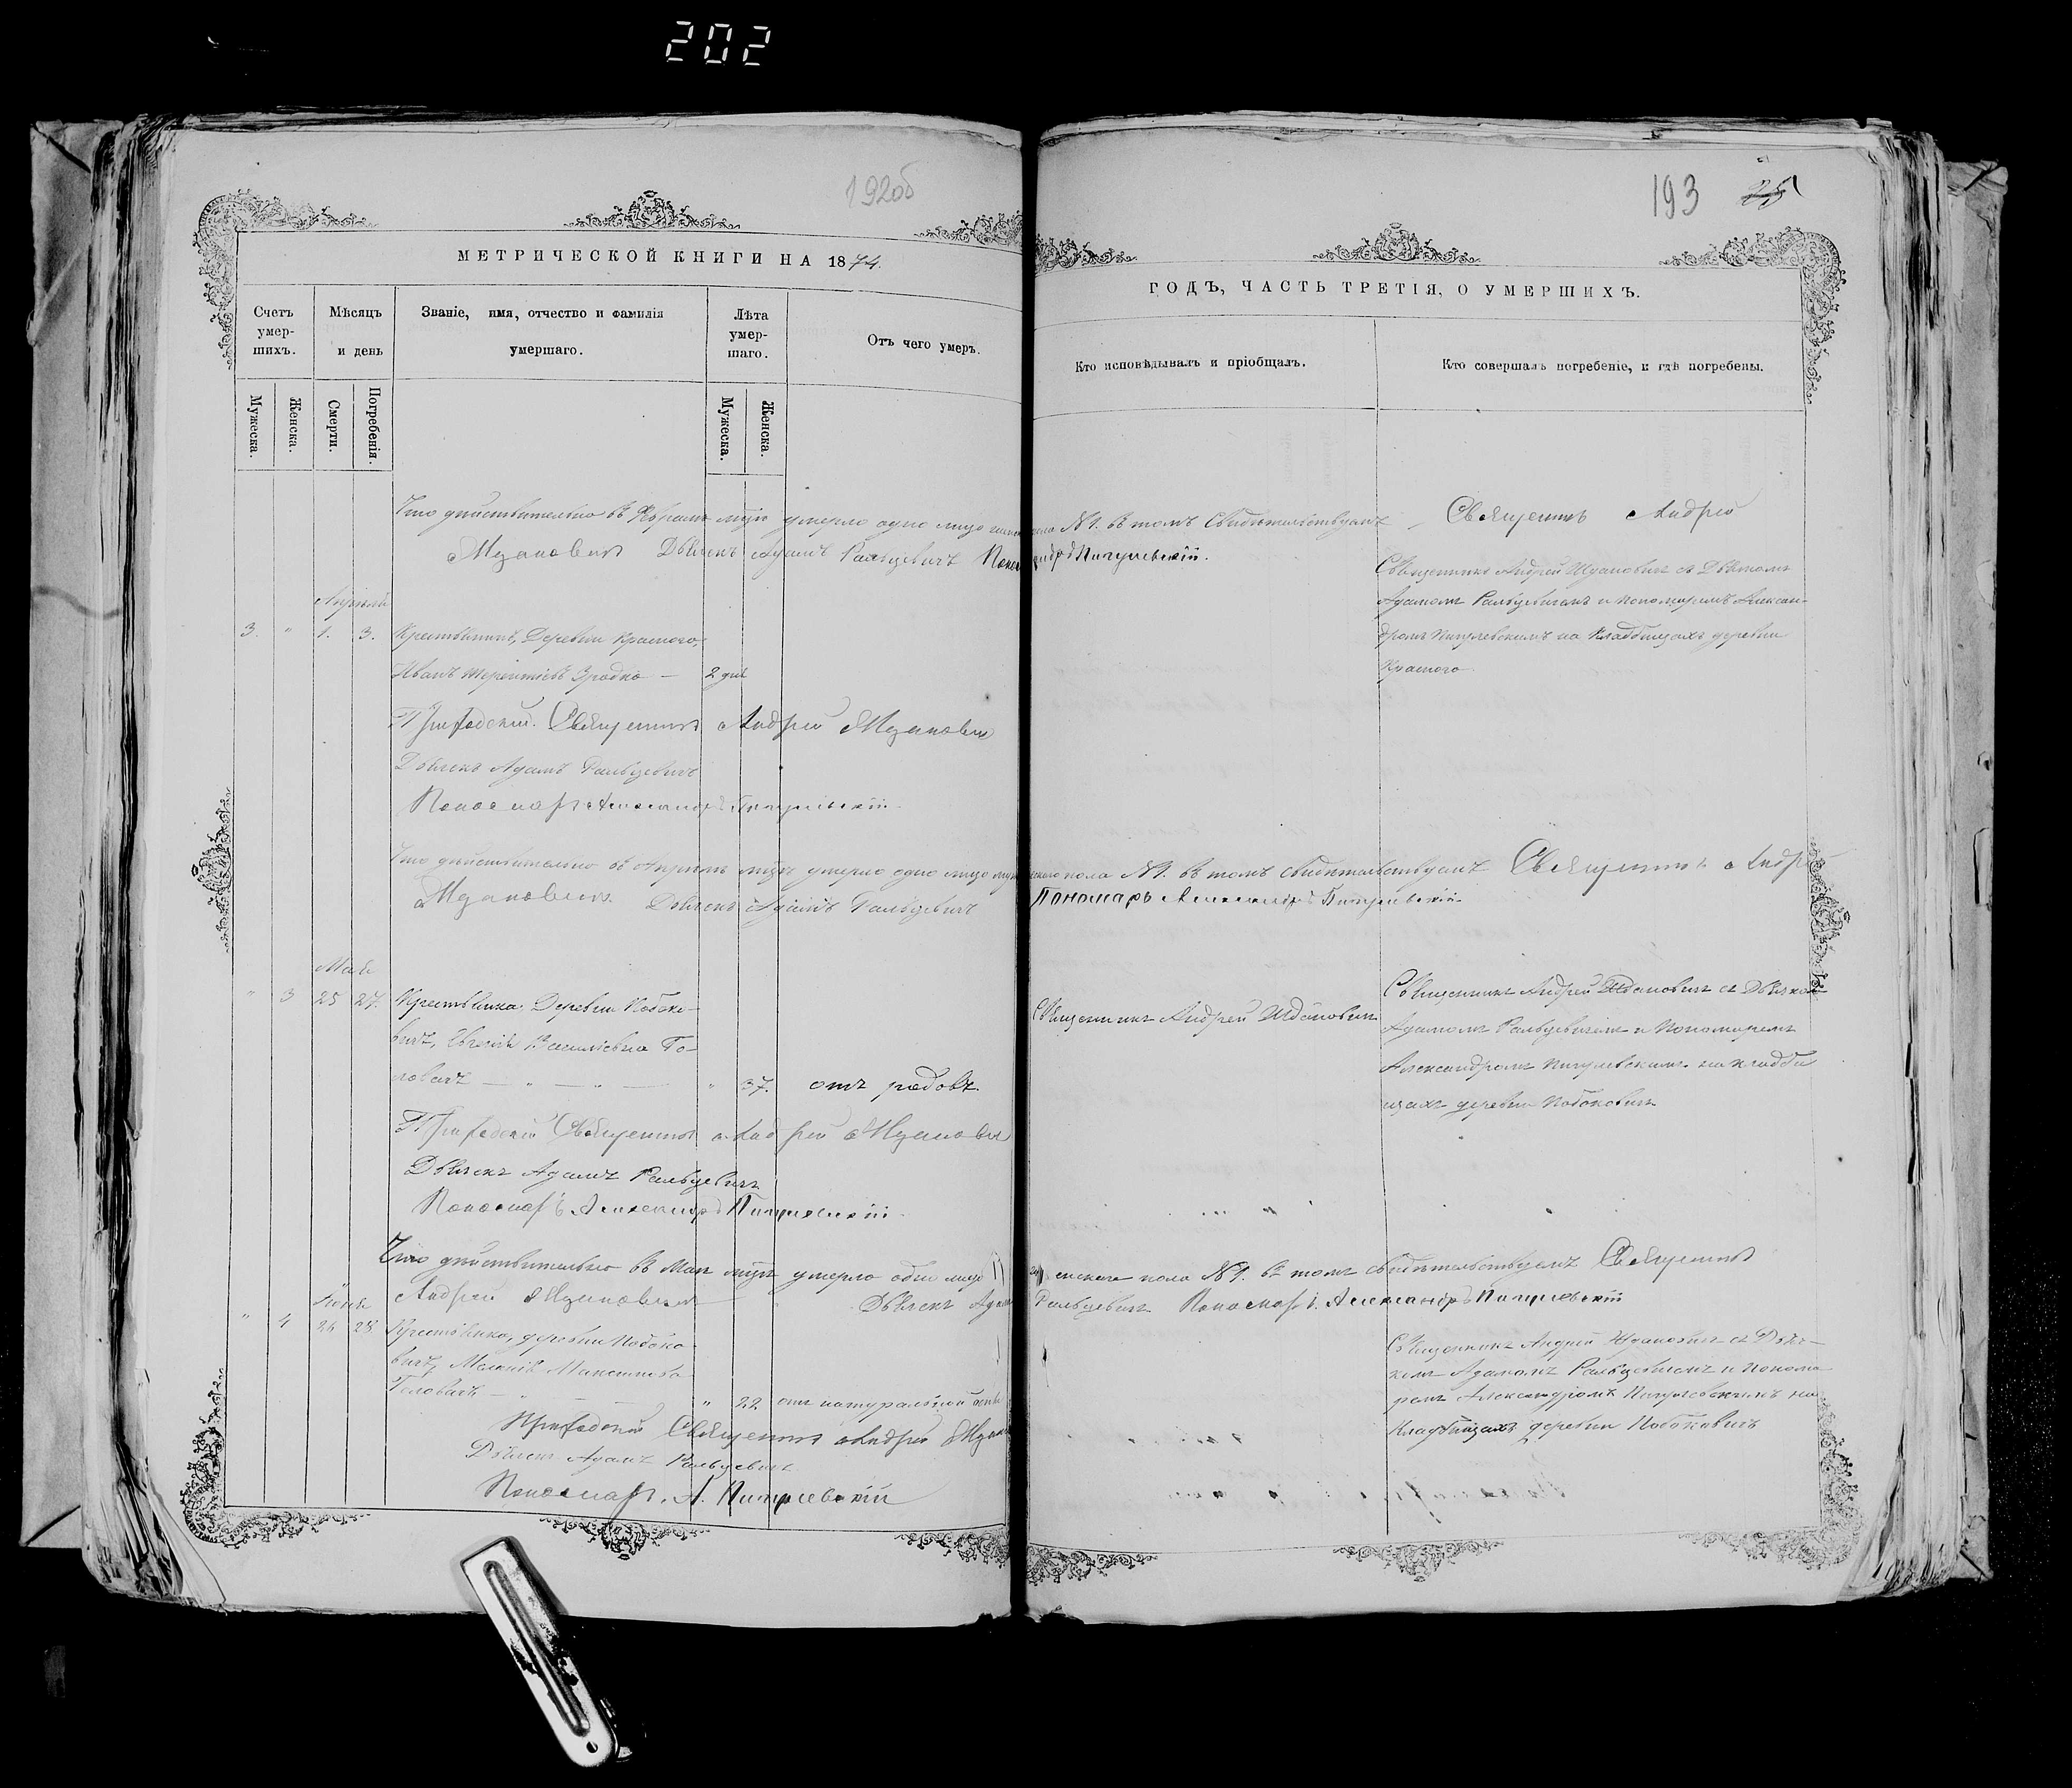 202
192об
193 25
МЕТРИЧЕСКОЙ КНИГИ НА 1874.
ГОДЪ, ЧАСТЬ ТРЕТІЯ, О УМЕРШИХЪ.
Счетъ умер-шихъ.
Мѣсяцъ и день
Званіе, имя, отчество и фамилія умершаго.
Лѣта умер-шаго.
Отъ чего умеръ.
Кто исповѣдывалъ и пріобщалъ.
Кто совершалъ погребеніе, и гдѣ погребены.
Мужеска.
Женска.
Смерти.
Погребенія.
Мужеска.
Женска.
Что дѣйствительно въ Февралѣ мцѣ умерло одно лицо № 1. въ томъ свидѣтельствуемъ Священникъ Андрей
Ждановичъ Дьячекъ Адамъ Ральцевичъ Пигулевскій.
Апрѣля
3. " 1. 3. Крестьянинъ, Деревни Красного,
Иванъ Терентіевъ Зродко — 2 дня
Священникъ Андрей Ждановичъ съ Дьячкомъ
Адамомъ Ральцевичемъ и Пономаремъ Алексан-
дромъ Пигулевскимъ на Кладбищахъ деревни
Красного
Приходскій Священникъ Андрей Ждановичъ
Дьячекъ Адамъ Ральцевичъ
Пономарь Александръ Пигулевскій
Что дѣйствительно въ Апрѣлѣ мцѣ умерло одно лицо мужескаго пола № 1. въ томъ свидѣтельствуемъ Священникъ Андрей
Ждановичъ Дьячекъ Адамъ Ральцевичъ Пономарь Александръ Пигулевскій
Мая
" 3 25 27. Крестьянка, Деревни Новоко-
вичъ, Евгенія Василіевна Го-
ловачъ — " — " — " 37. отъ родовъ
Священникъ Андрей Ждановичъ
Священникъ Андрей Ждановичъ съ Дьячкомъ
Адамомъ Ральцевичемъ и Пономаремъ
Александромъ Пигулевскимъ на кладби
щахъ деревни
Приходскій Священникъ Андрей Ждановичъ
Дьячекъ Адамъ Ральцевичъ
Пономарь Александръ Пигулевскій
Что дѣйствительно въ Маѣ мцѣ умерло одно лицо женскаго пола № 1. въ томъ свидѣтельствуемъ Священникъ
Андрей Ждановичъ Дьячекъ Адамъ Ральцевичъ Пономарь Александръ Пигулевскій
Іюня
" 4 26 28 Крестьянка, деревни
Меланія Максимова
Головачъ — " " 22 отъ натуральной
Священникъ Андрей Ждановичъ съ Дьяч-
комъ Адамомъ Ральцевичемъ и Понома-
ремъ Александромъ Пигулевскимъ на
Кладбищахъ деревни
Приходскій Священникъ Андрей
Дьячекъ Адамъ Ральцевичъ
Пономарь А. Пигулевскій